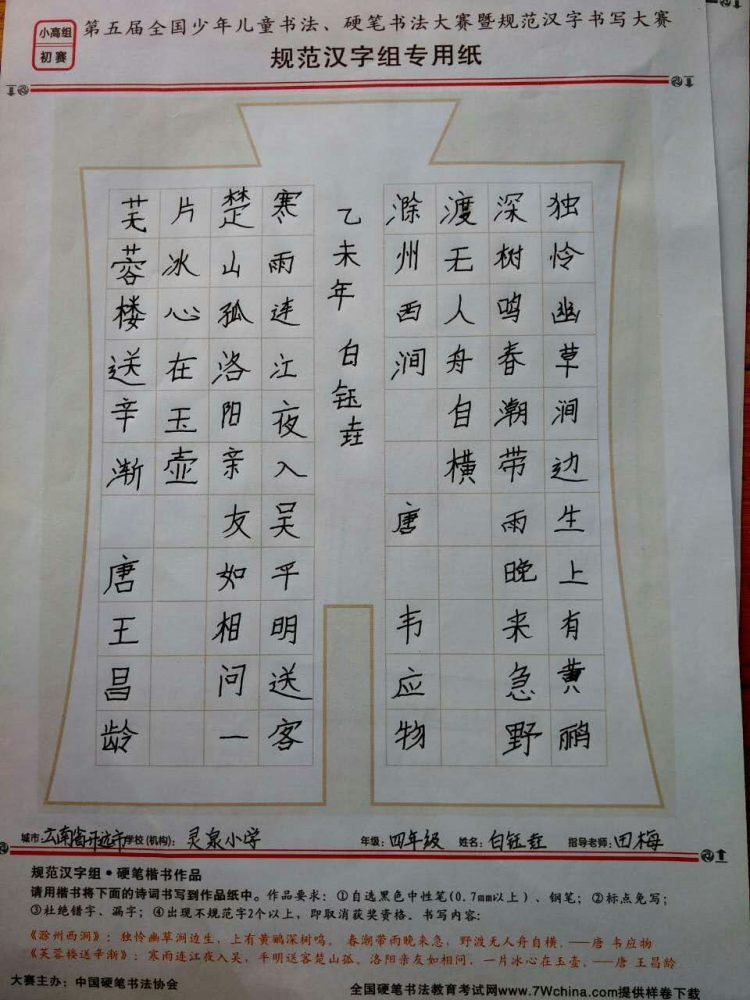 小高组
初赛
第五届全国少年儿童书法、硬笔书法大赛暨规范汉字书写大赛
规范汉字组专用纸
独怜幽草涧边生上有黄鹂
深树鸣春潮带雨晚来急野
渡无人舟自横
滁州西涧 唐 韦应物
乙未年 白钰垚
寒雨连江夜入吴平明送客
楚山孤洛阳亲友如相问一
片冰心在玉壶
芙蓉楼送辛渐 唐王昌龄
城市:云南省开远市学校(机构):灵泉小学 年级:四年级 姓名:白钰垚 指导老师:田梅
规范汉字组·硬笔楷书作品
请用楷书将下面的诗词书写到作品纸中。作品要求:①自选黑色中性笔(0.7mm以上)、钢笔;②标点免写;
③杜绝错字、漏字;④出现不规范字2个以上,即取消获奖资格。书写内容:
《滁州西涧》:独怜幽草涧边生,上有黄鹂深树鸣。春潮带雨晚来急,野渡无人舟自横。——唐 韦应物
《芙蓉楼送辛渐》:寒雨连江夜入吴,平明送客楚山孤。洛阳亲友如相问,一片冰心在玉壶。——唐 王昌龄
大赛主办:中国硬笔书法协会 全国硬笔书法教育考试网www.7Wchina.com提供样卷下载